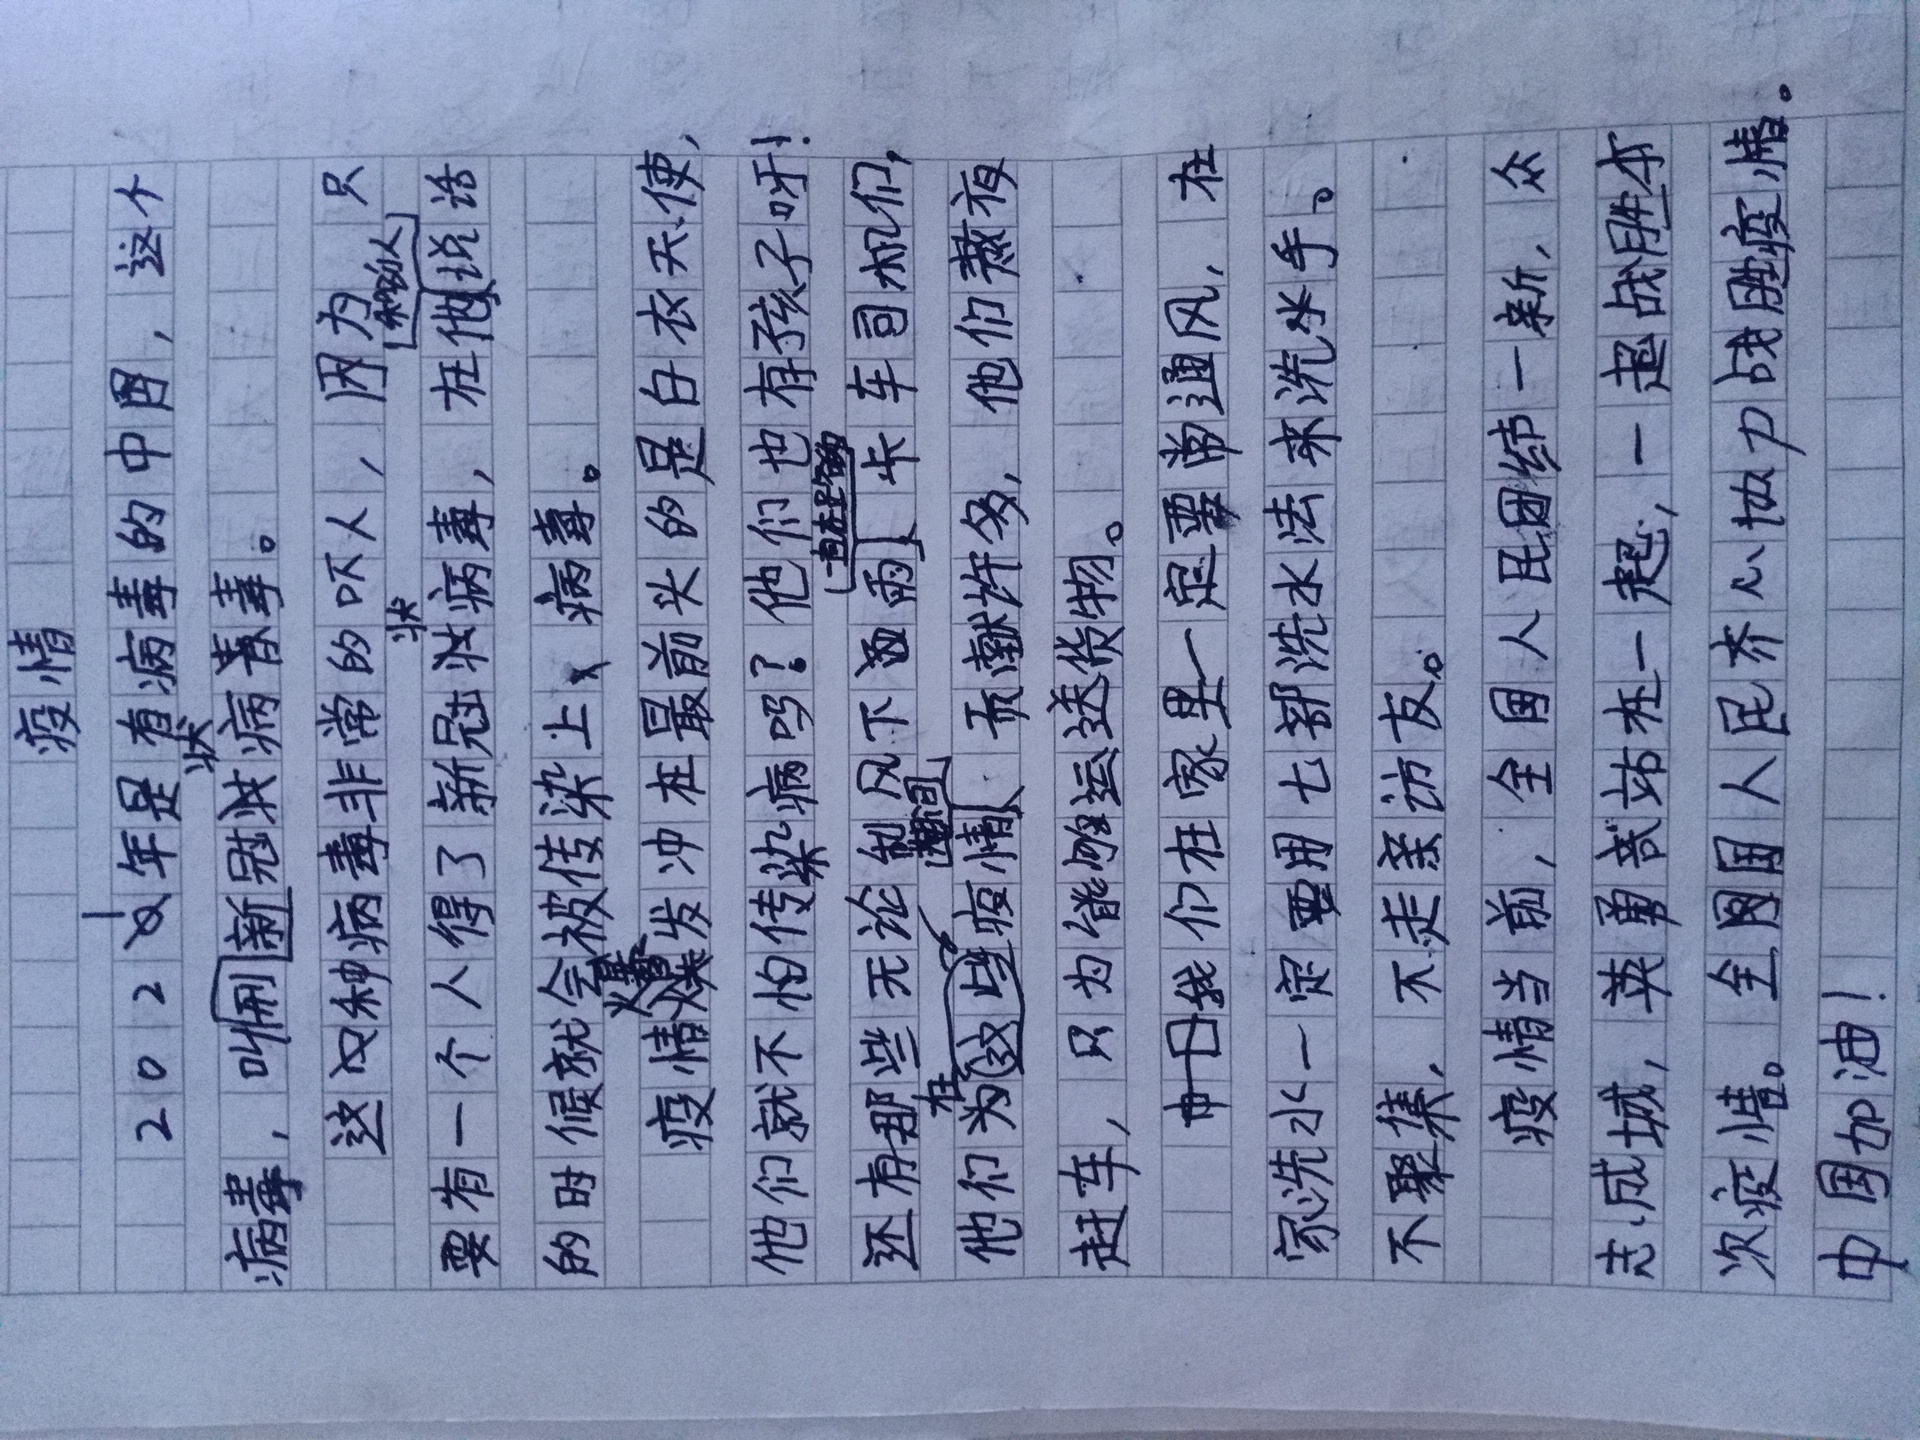 疫情
2021年是有病毒的中国，这个
病毒，叫新冠状病毒。
这种病毒非常的吓人，因为只
要有一个人得了新冠状病毒，在和别人说话
的时候就会被传染上病毒。
疫情爆发冲在最前头的是白衣天使，
他们就不怕传染病吗？他们也有孩子呀！
还有那些无论刮风下雨卡车司机们，
他们在疫情期间贡献许多，他们熬夜
赶车，只为能够运送货物。
我们在家里一定要常通风，在
家洗水一定要用七部洗水法来洗手。
不聚集，不走亲访友。
疫情当前，全国人民团结一新，众
志成城，英勇站在一起，一起战胜本
次疫情。全国人民齐心协力战胜疫情。
中国加油！